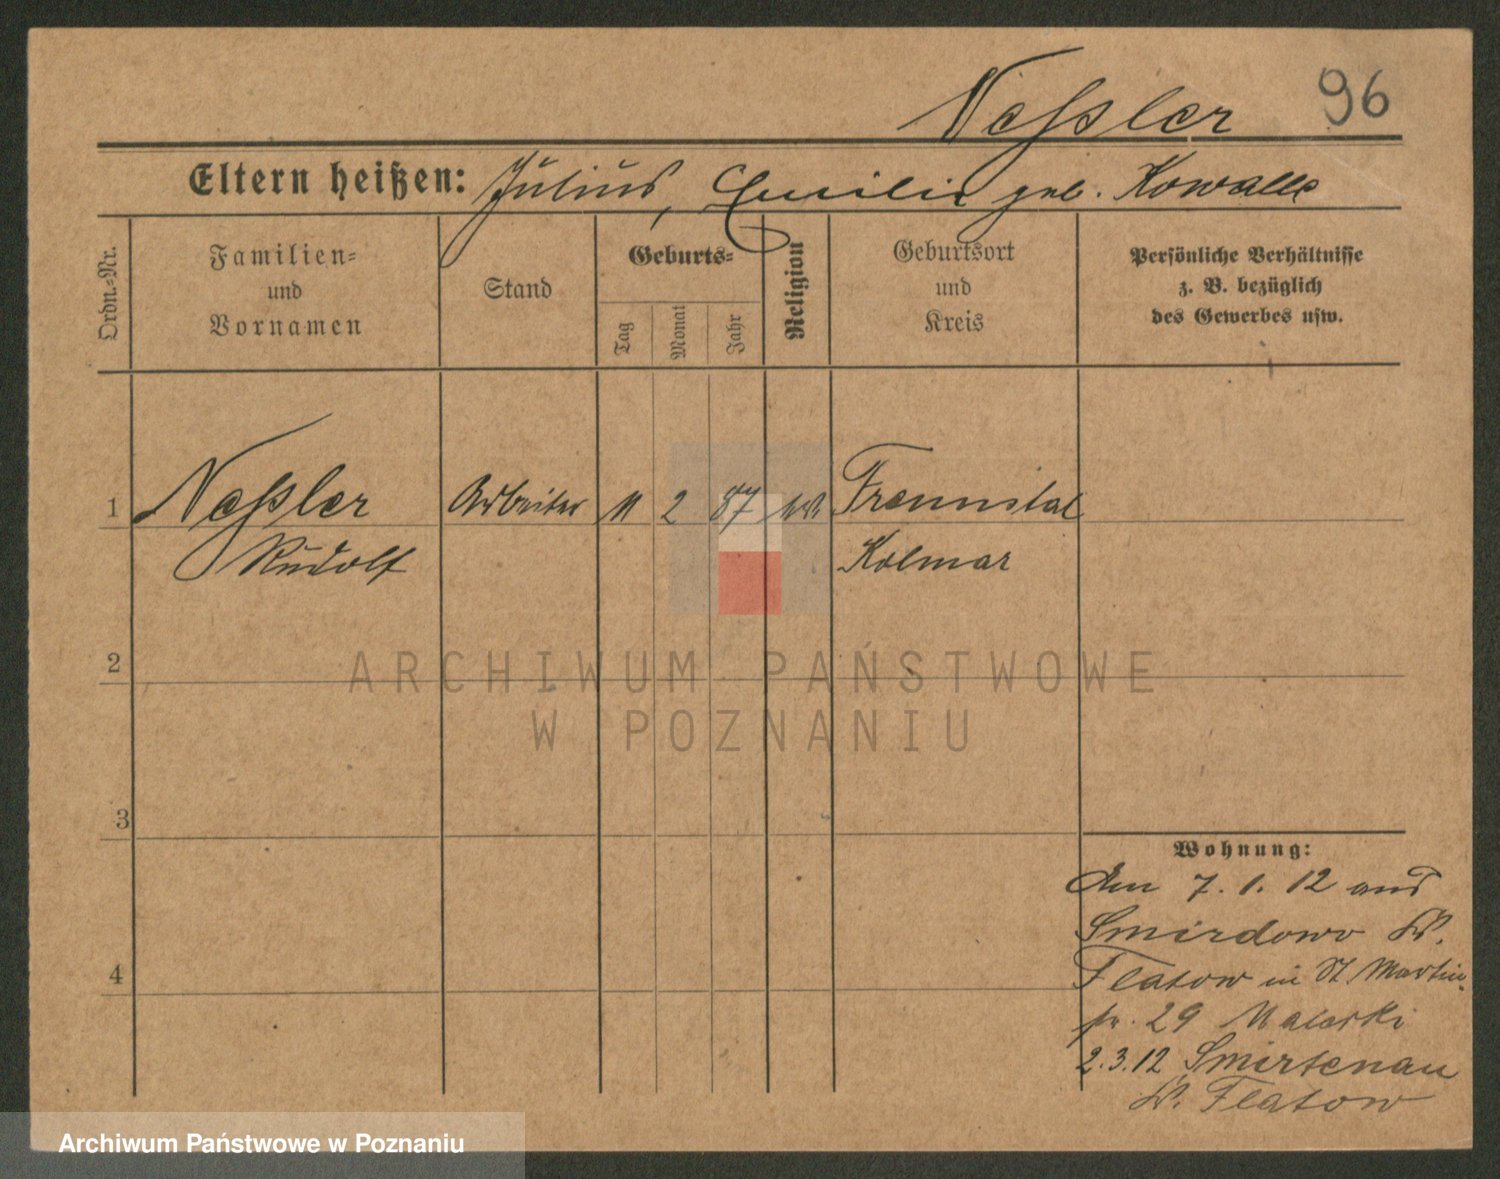 Neßler 96
Eltern heißen: Julius, Emilie geb. Kowalle
Ordn.-Nr.
Familien- und Vornamen
Stand
Geburts-
Tag
Monat
Jahr
Religion
Geburtsort und Kreis
Persönliche Verhältnisse
z. B. bezüglich
des Gewerbes usw.
1 Neßler Arbeiter 11 2 87 Kolmar
Rudolf
2
3
4
Wohnung:
Am 7.1.12 aus
Smirdowo Kr.
Flatow in St Martin-
str. 29 Malerki
2.3.12 Smirtenau
Kr. Flatow
ARCHIWUM PAŃSTWOWE
W POZNANIU
Archiwum Państwowe w Poznaniu